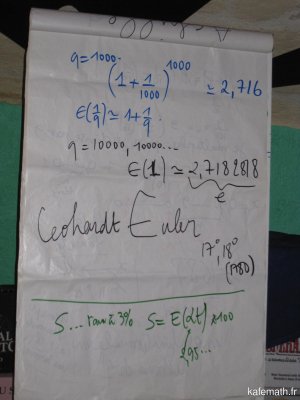 q=1000.
(1+1/1000)^1000 ≃2,716
E(1/q)≃1+1/q.
q=10000,10000...
E(1)≃2,7182818
e
Leohardt Euler
17°,18°
(1780)
S... taux à 3% S=E(αt)×100
kafemath.fr